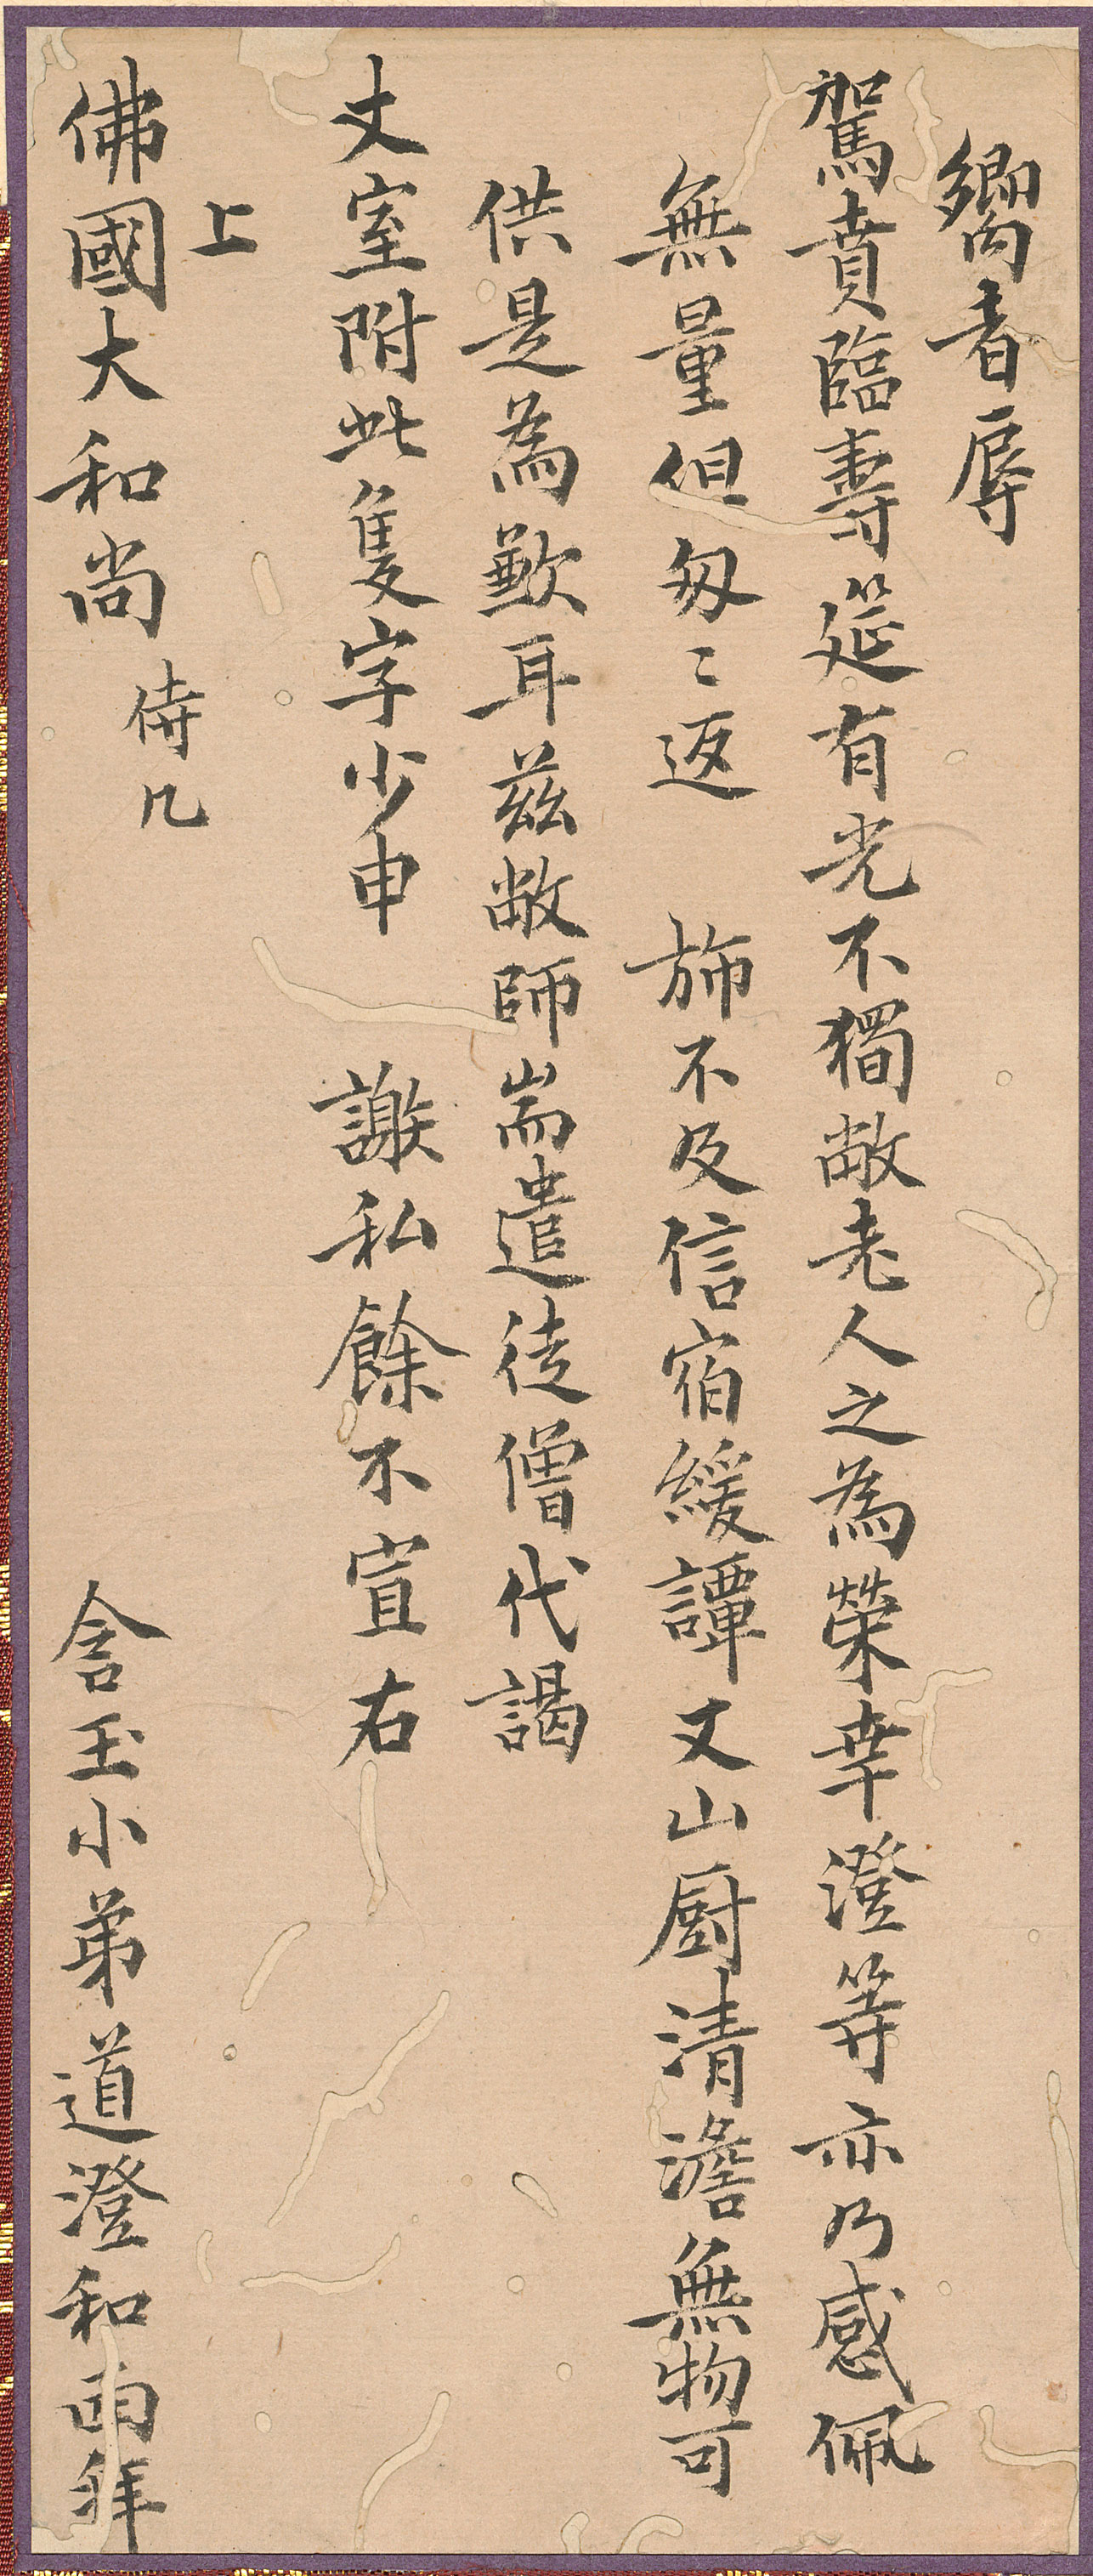 嚮者辱
駕賁臨壽筵有光不獨敝老人之為榮幸澄等亦乃感佩
無量但匆〻返 斾不及信宿緩譚又山厨清澹無物可
供是為歉耳茲敝師耑遣徒僧代謁
丈室附此隻字少申 謝私餘不宣右
上
佛國大和尚 侍几
含玉小弟道澄和南拜